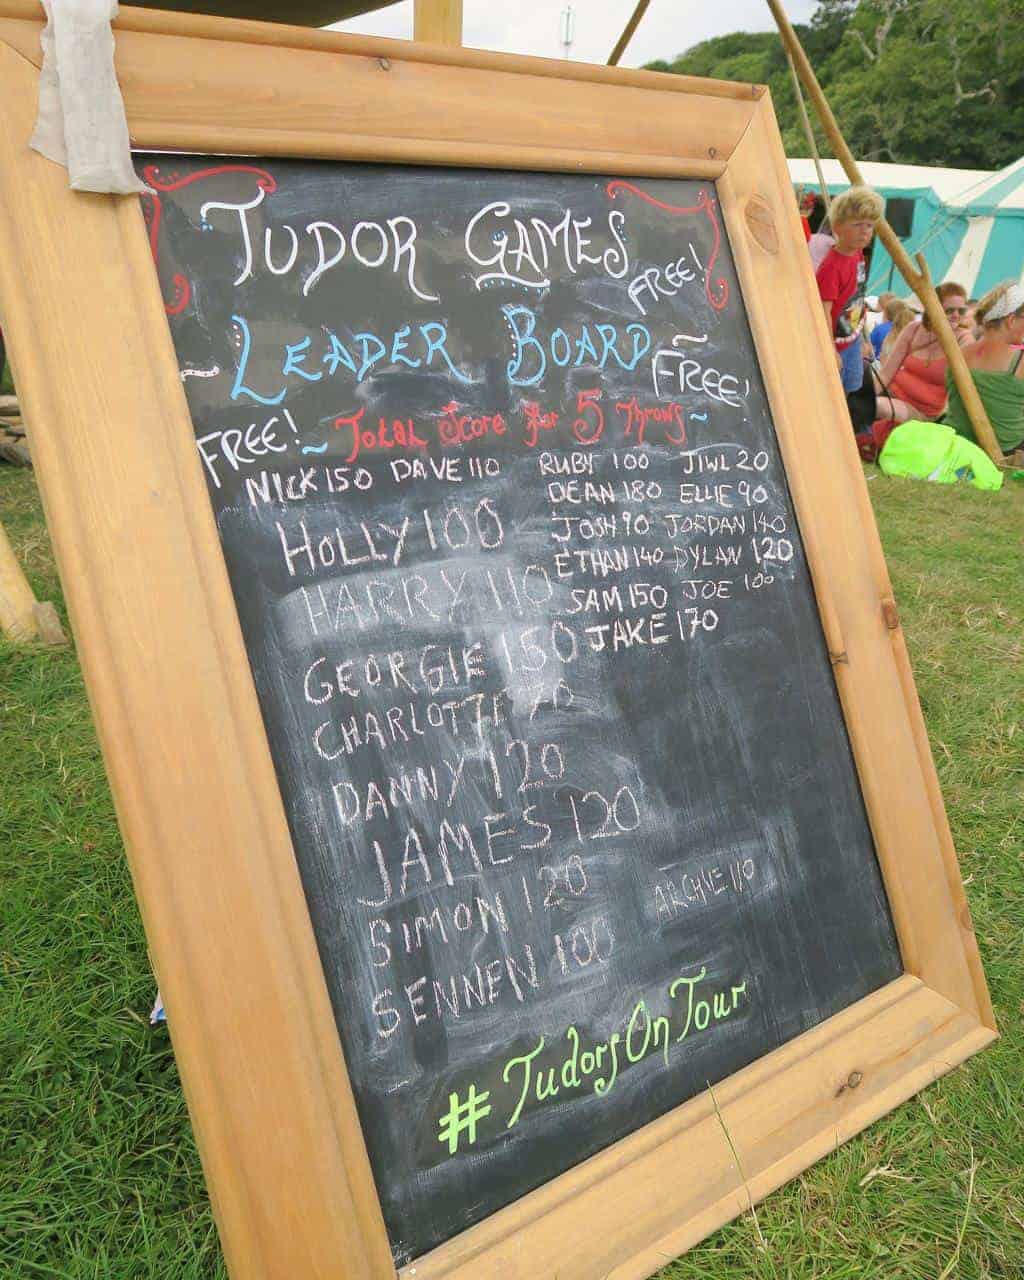 TUDOR GAMES
FREE!
LEADER BOARD
FREE!
FREE!
~ Total Score for 5 Throws ~
NICK 150 DAVE 110
HOLLY 100
HARRY 110
GEORGIE 150
CHARLOTTE
DANNY 120
JAMES 120
SIMON 120
SENNEN 100
RUBY 100 JIWL 20
DEAN 180 ELLIE 90
JOSH 90 JORDAN 140
ETHAN 140 DYLAN 120
SAM 150 JOE 100
JAKE 170
ARCHIE 110
#TudorsOnTour